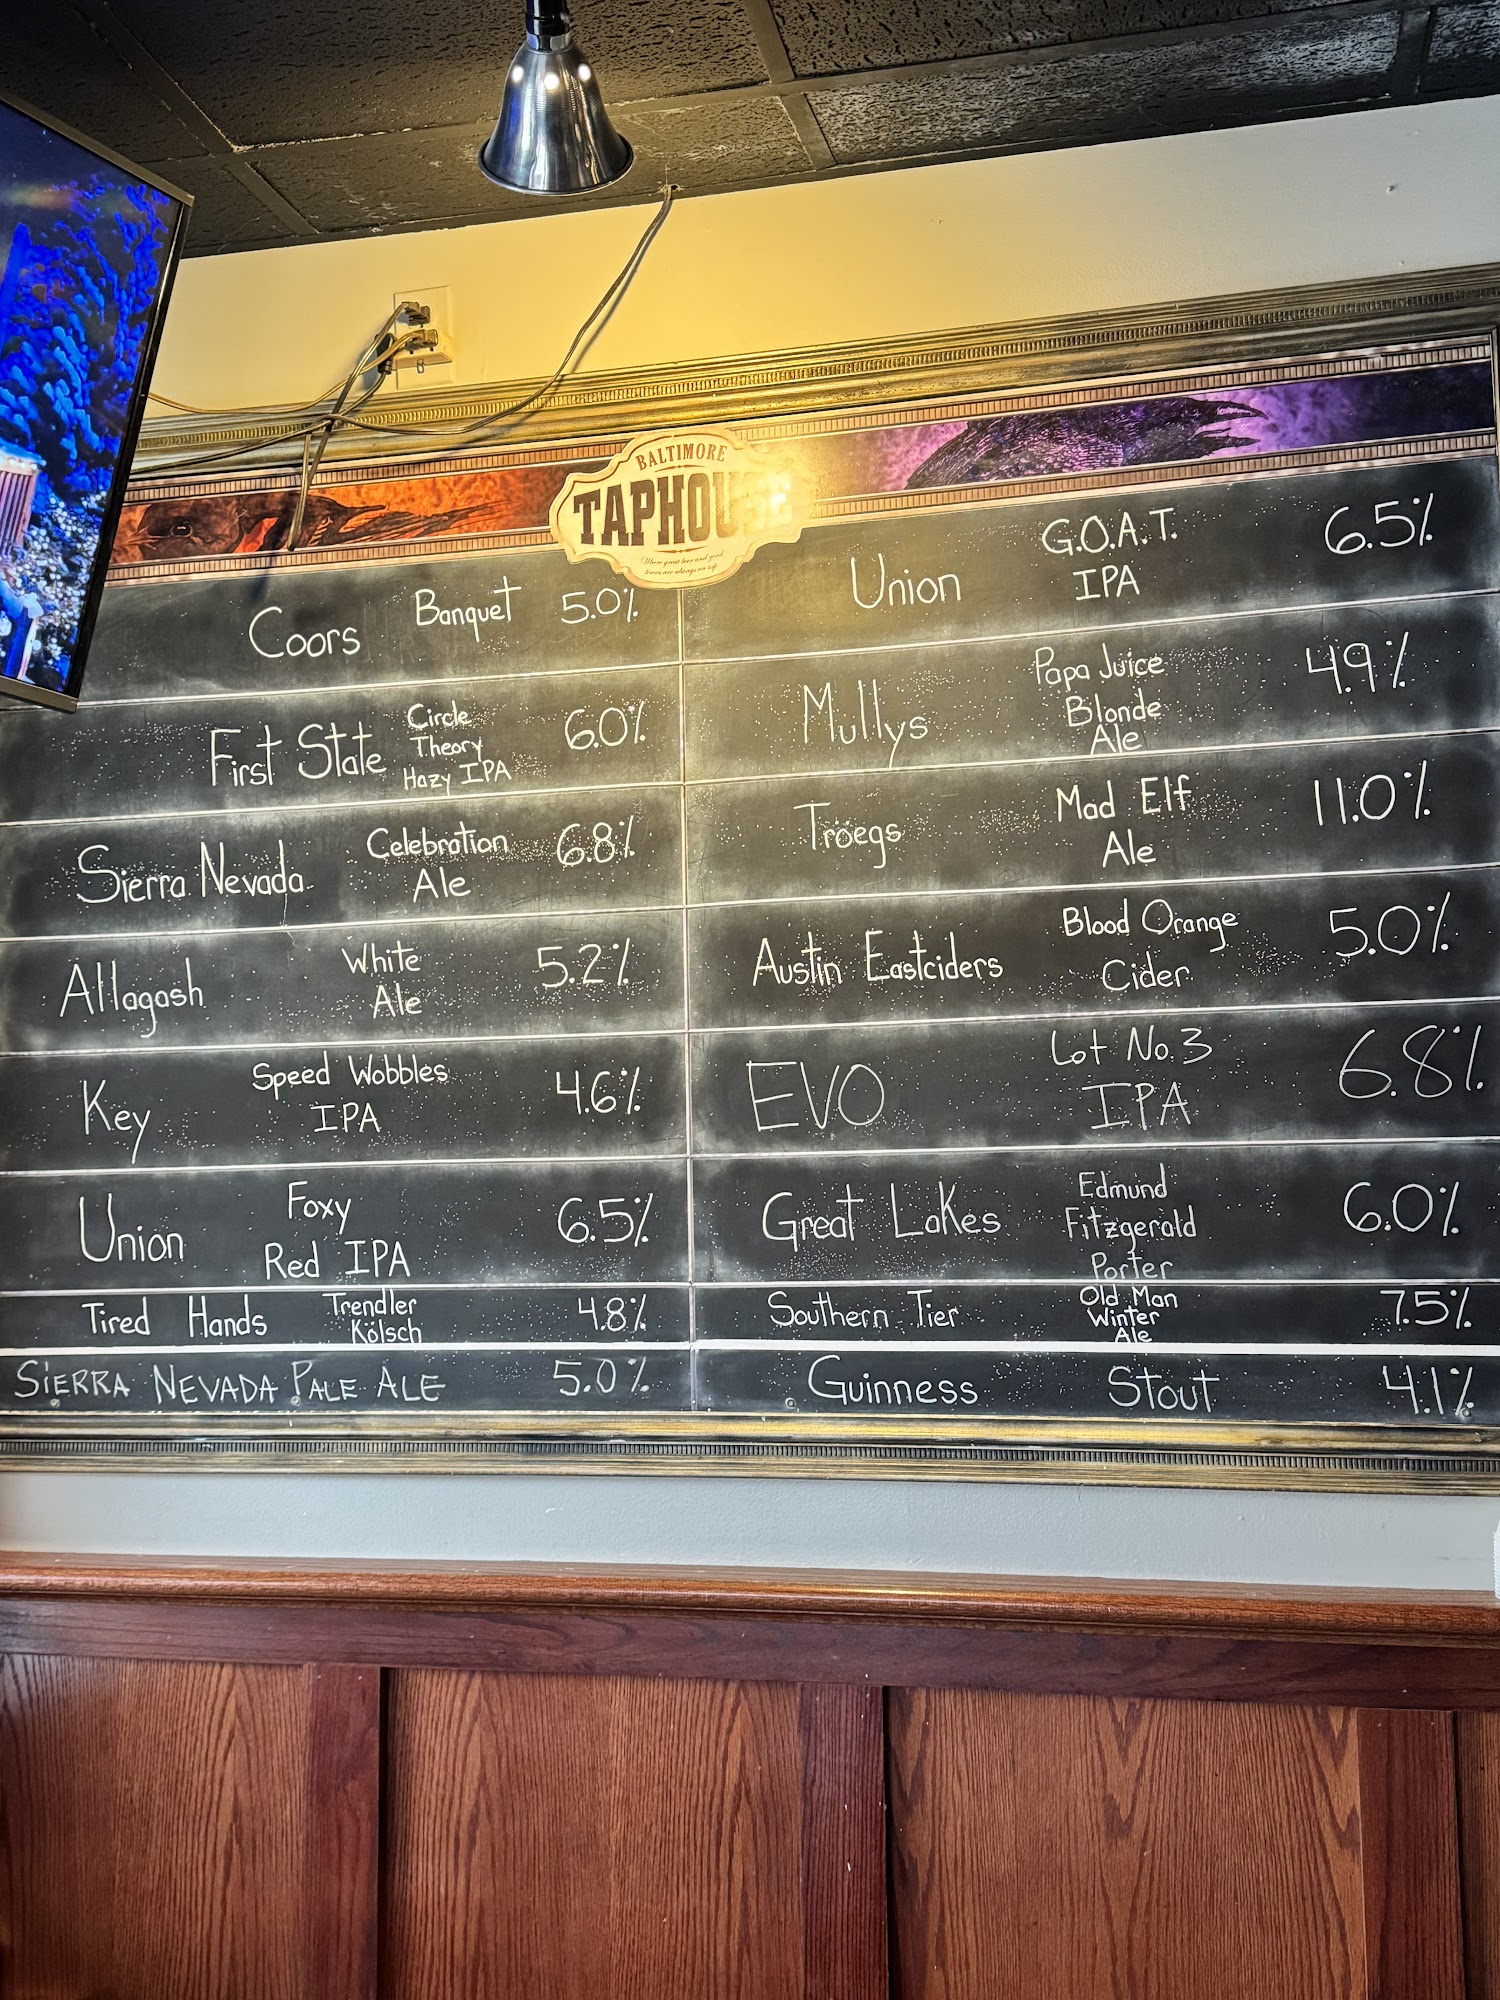 BALTIMORE
TAPHOUSE
Where great beer and good
times are always on tap
Coors Banquet 5.0%
First State Circle
Theory
Hazy IPA 6.0%
Sierra Nevada Celebration
Ale 6.8%
Allagash White
Ale 5.2%
Key Speed Wobbles
IPA 4.6%
Union Foxy
Red IPA 6.5%
Tired Hands Trendler
Kölsch 4.8%
SIERRA NEVADA PALE ALE 5.0%
Union G.O.A.T.
IPA 6.5%
Mullys Papa Juice
Blonde
Ale 4.9%
Troegs Mad Elf
Ale 11.0%
Austin Eastciders Blood Orange
Cider 5.0%
EVO Lot No. 3
IPA 6.8%
Great Lakes Edmund
Fitzgerald
Porter 6.0%
Southern Tier Old Man
Winter
Ale 7.5%
Guinness Stout 4.1%